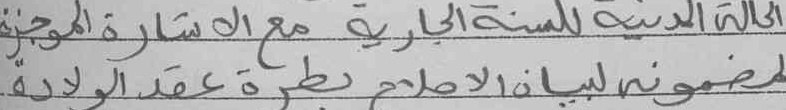 الحالة المدنية للسنة الجارية مع الاشارة الموجزة
لمضمونه لبيان الاصلاح بطرة عقد الولادة